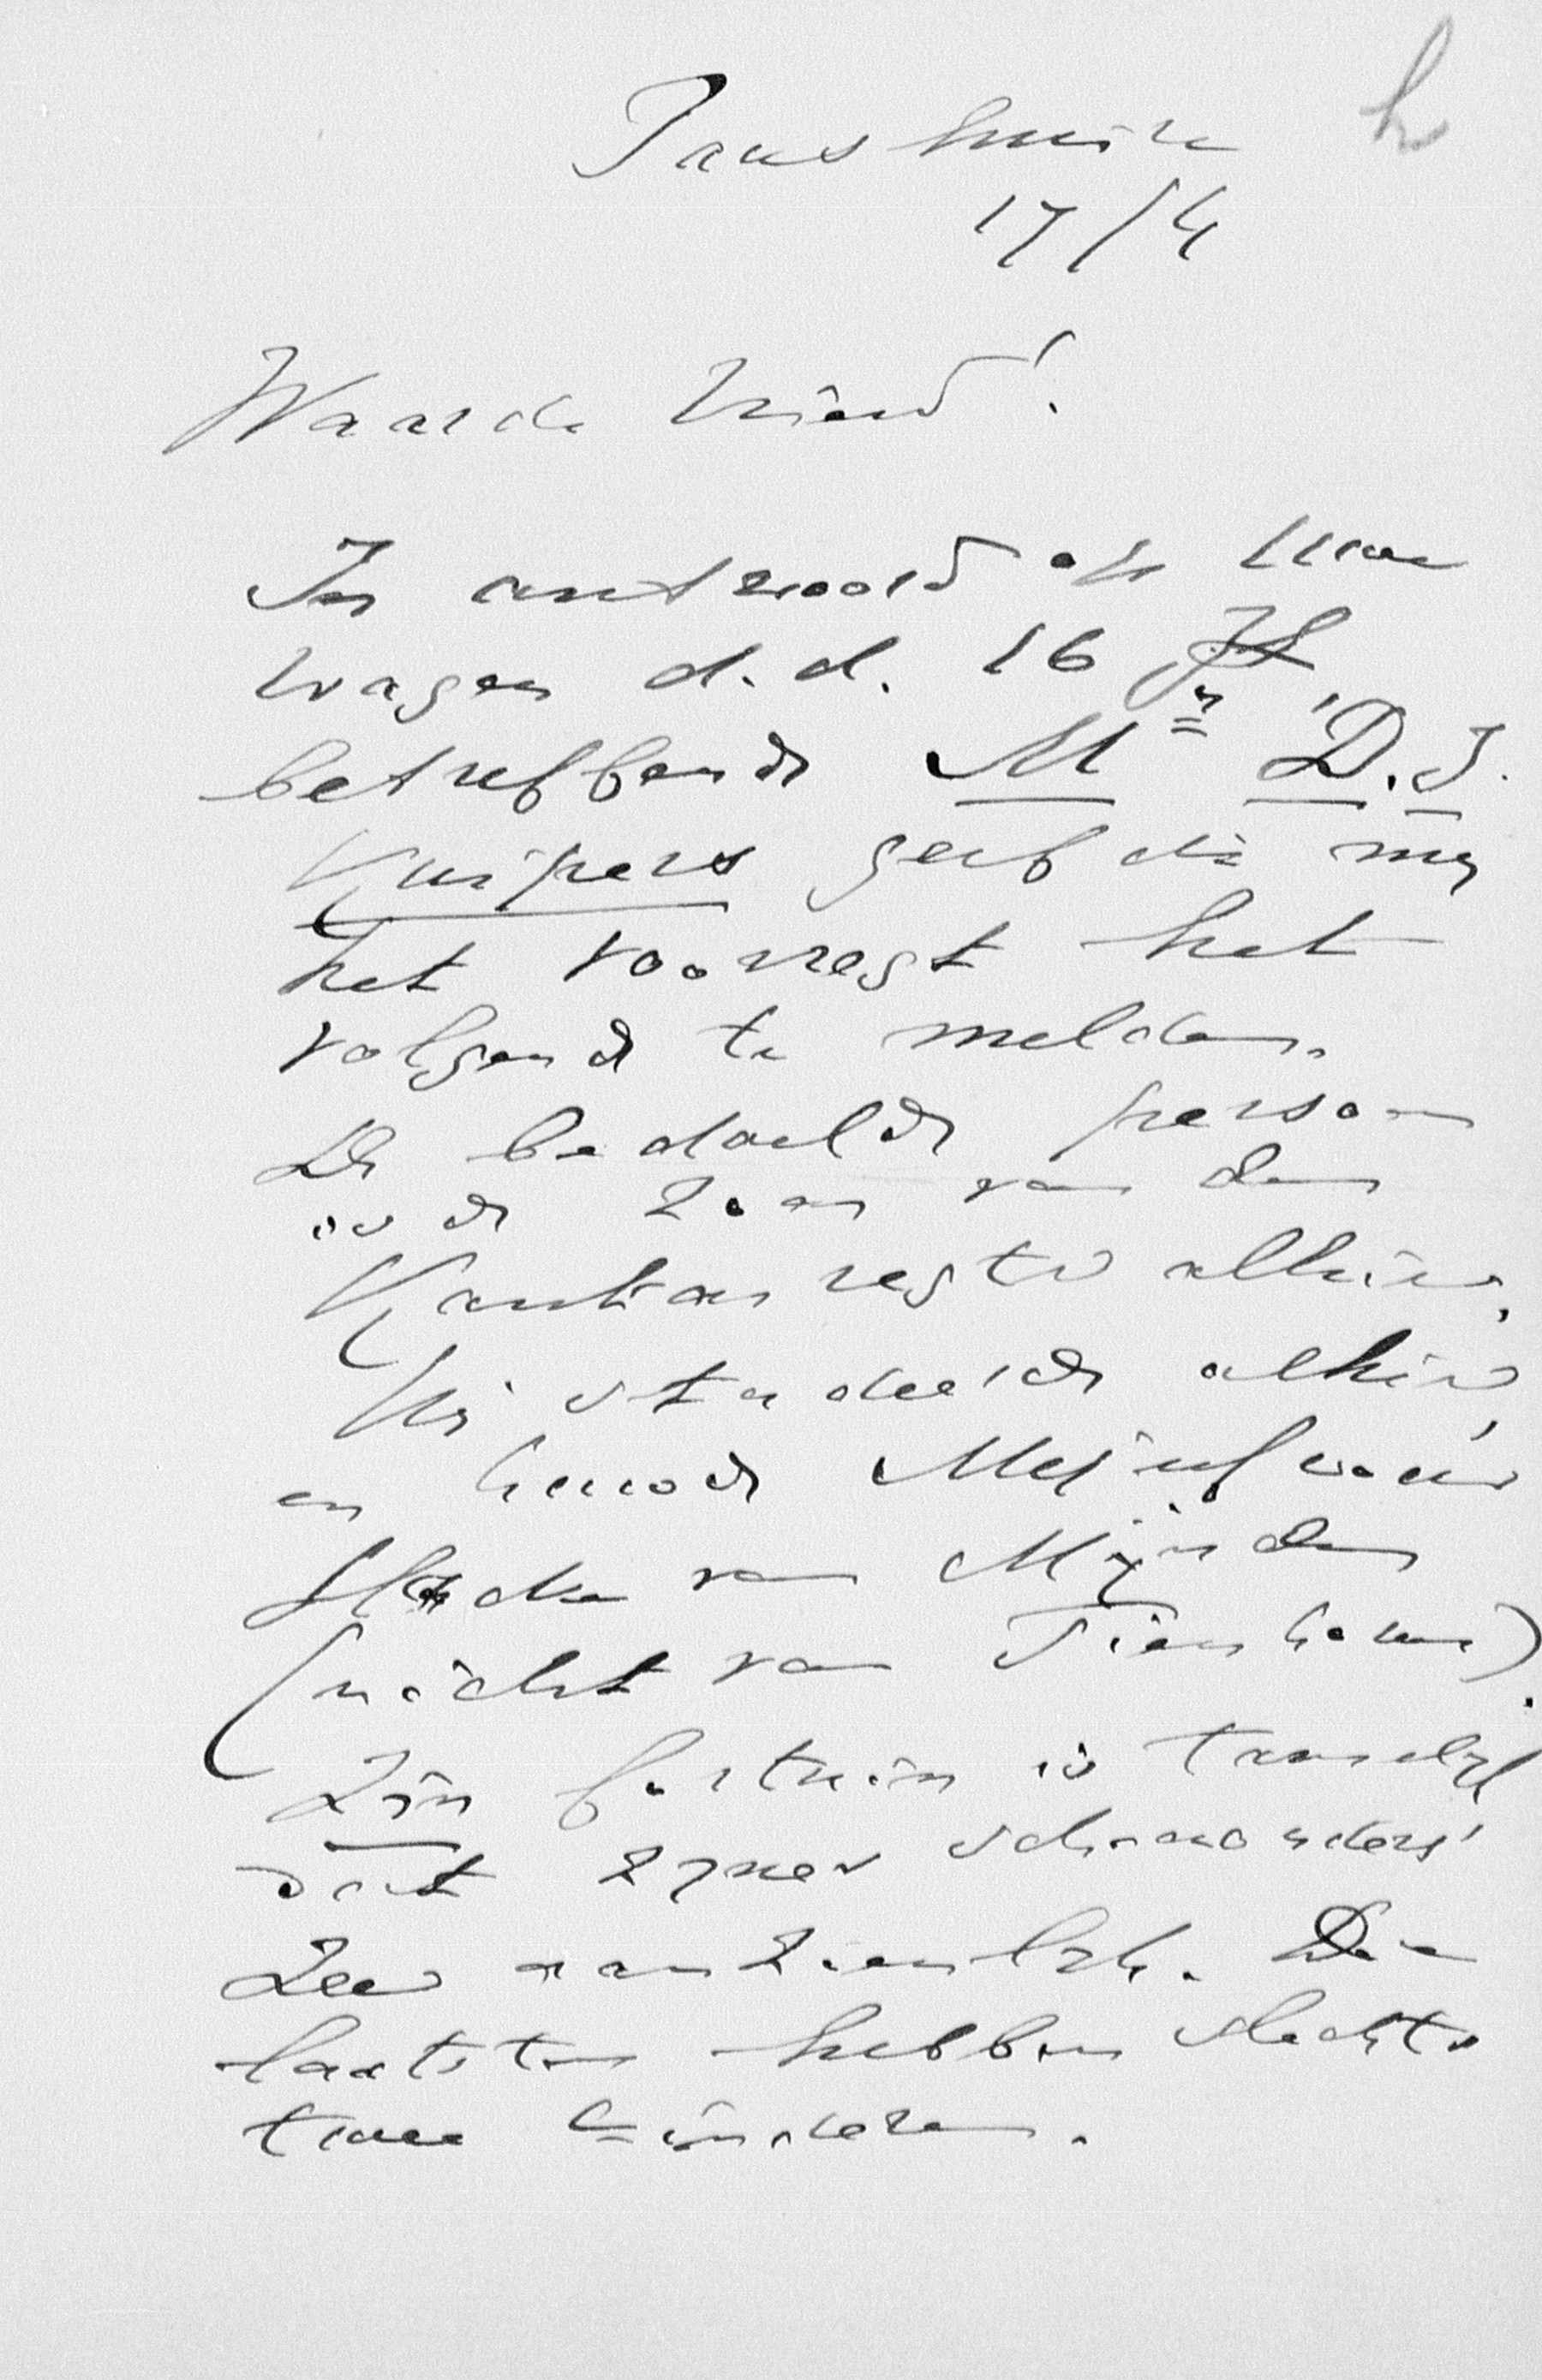 Janshuize
17/4
Waarde Vriend!
In antwoord op Uwe
vragen d.d. 16
betreffende Mr D.J.
Kuipers geeft die mij
het voorregt het
volgende te melden.
De bedoelde persoon
is de zoon van den
Kantonregter alhier.
Hij studeerde alhier,
en huwde Mejufvrouw
van Mijnden
(nicht van Tienhoven).
Zijn fortuin is tamelijk
dat zijner schoonouders
zeer aanzienlijk. Die
laatsten hebben slechts
twee kinderen.